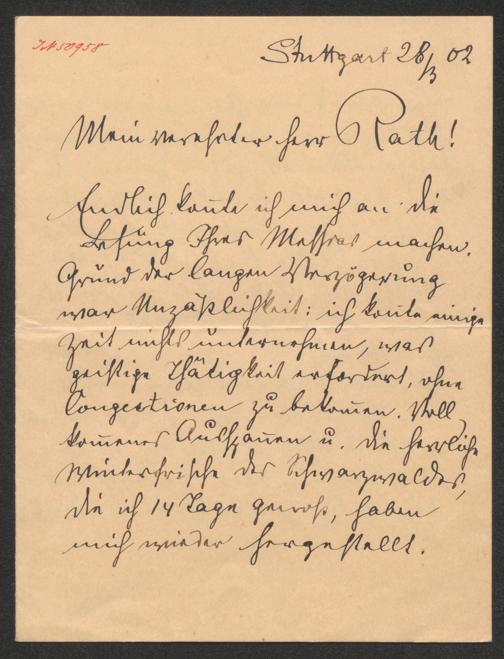 IN 50958
Stuttgart 28/3 02
Mein verehrter Herr Rath!
Endlich konnte ich mich an die
Lesung Ihres Messias machen.
Grund der langen Verzögerung
war Unpäßlichkeit: ich konnte einige
Zeit nichts unternehmen, was
geistige Thätigkeit erfordert, ohne
Congestionen zu bekommen. Voll
kommenes Ausspannen u. die herrliche
Winterfrische des Schwarzwaldes,
die ich 14 Tage genoß, haben
mich wieder hergestellt.